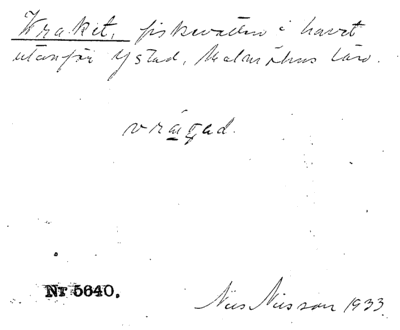 Wraket, fiskevatten i havet
utanför Ystad, Malmöhus län.
vrägad.
Nr 5640.
Nils Nilsson 1933.